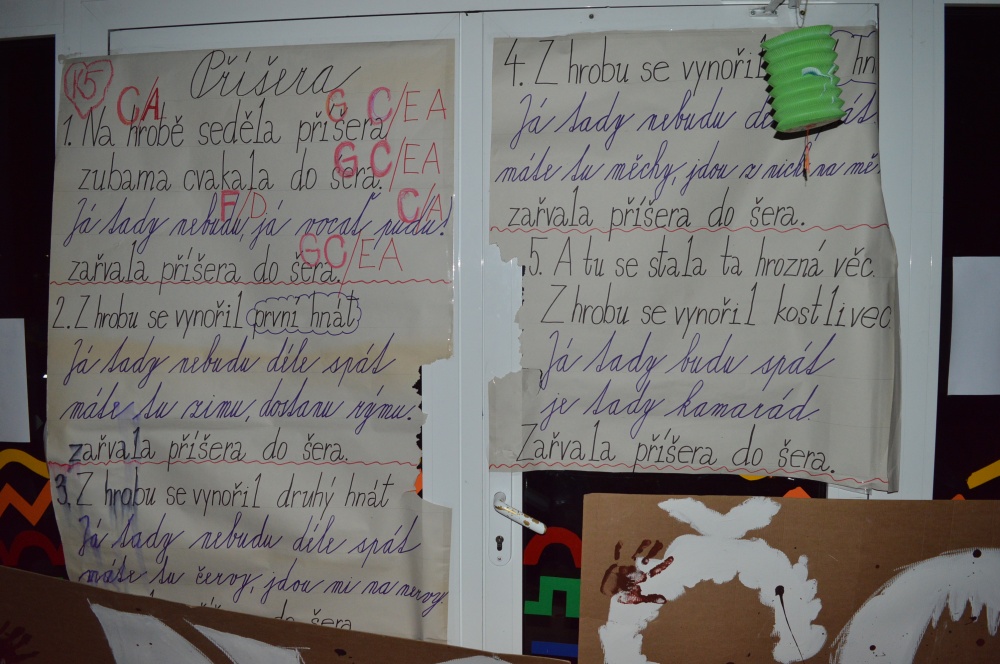 K5 Příšera
C/A G C/E A
1. Na hrobě seděla příšera
G C/E A
zubama cvakala do šera.
F/D C/A
Já tady nebudu, já vocať pudu!
G C/E A
zařvala příšera do šera.
2. Z hrobu se vynořil první hnát
Já tady nebudu déle spát
máte tu zimu, dostanu rýmu.
zařvala příšera do šera.
3. Z hrobu se vynořil druhý hnát
Já tady nebudu déle spát
máte tu červy, jdou mi na nervy.
do šera
4. Z hrobu se vynořil hn
Já tady nebudu
máte tu měchy, jdou z nich na
zařvala příšera do šera.
5. A tu se stala ta hrozná věc.
Z hrobu se vynořil kostlivec
Já tady budu spát
je tady kamarád.
Zařvala příšera do šera.